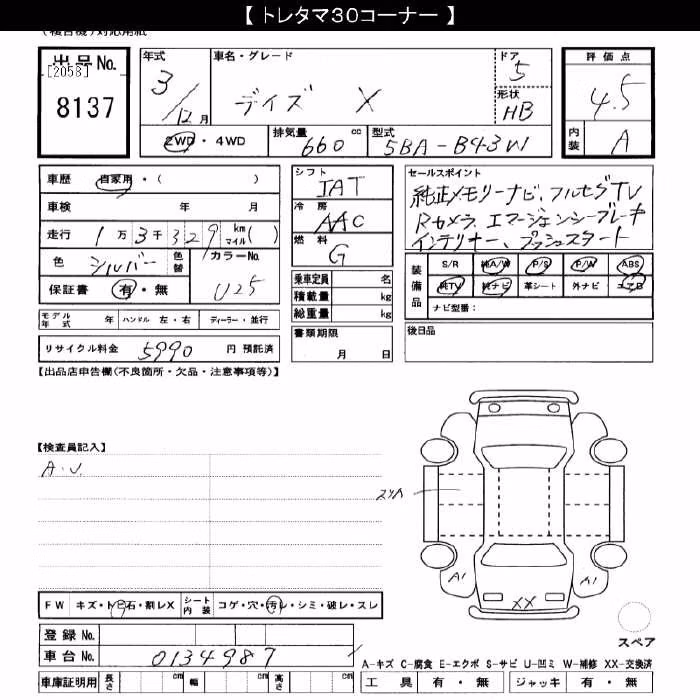 【 トレタマ30コーナー 】
(複合機)対応用紙
出品No. [2058] 8137
年式 3/12月
車名・グレード デイズ X
ドア 5
形状 HB
評価点 4.5
内装 A
2WD・4WD
排気量 660 cc
型式 5BA-B43W
車歴 自家用・( )
車検 年 月
走行 1万3千329 km マイル( )
色 シルバー 色替
カラーNo. U25
保証書 有・無
シフト IAT
冷房 AAC
燃料 G
乗車定員 名
積載量 kg
総重量 kg
セールスポイント
純正メモリーナビ、フルセグTV
Rカメラ、エマージェンシーブレーキ
インテリキー、プッシュスタート
装備品 S/R 純A/W P/S P/W ABS
純TV 純ナビ 革シート 外ナビ エアB
ナビ型番:
モデル年式 年 ハンドル 左・右 ディーラー・並行
リサイクル料金 5990 円 預託済
書類期限 月 日
後日品
【出品店申告欄(不良箇所・欠品・注意事項等)】
【検査員記入】
A・U
A1
A1
XX
FW キズ・トビ石・割レX シート内装 コゲ・穴・汚レ・シミ・破レ・スレ
登録No.
車台No. 0134987
スペア
A-キズ C-腐食 E-エクボ S-サビ U-凹ミ W-補修 XX-交換済
車庫証明用 長さ cm 幅 cm 高さ cm
工具 有・無 ジャッキ 有・無